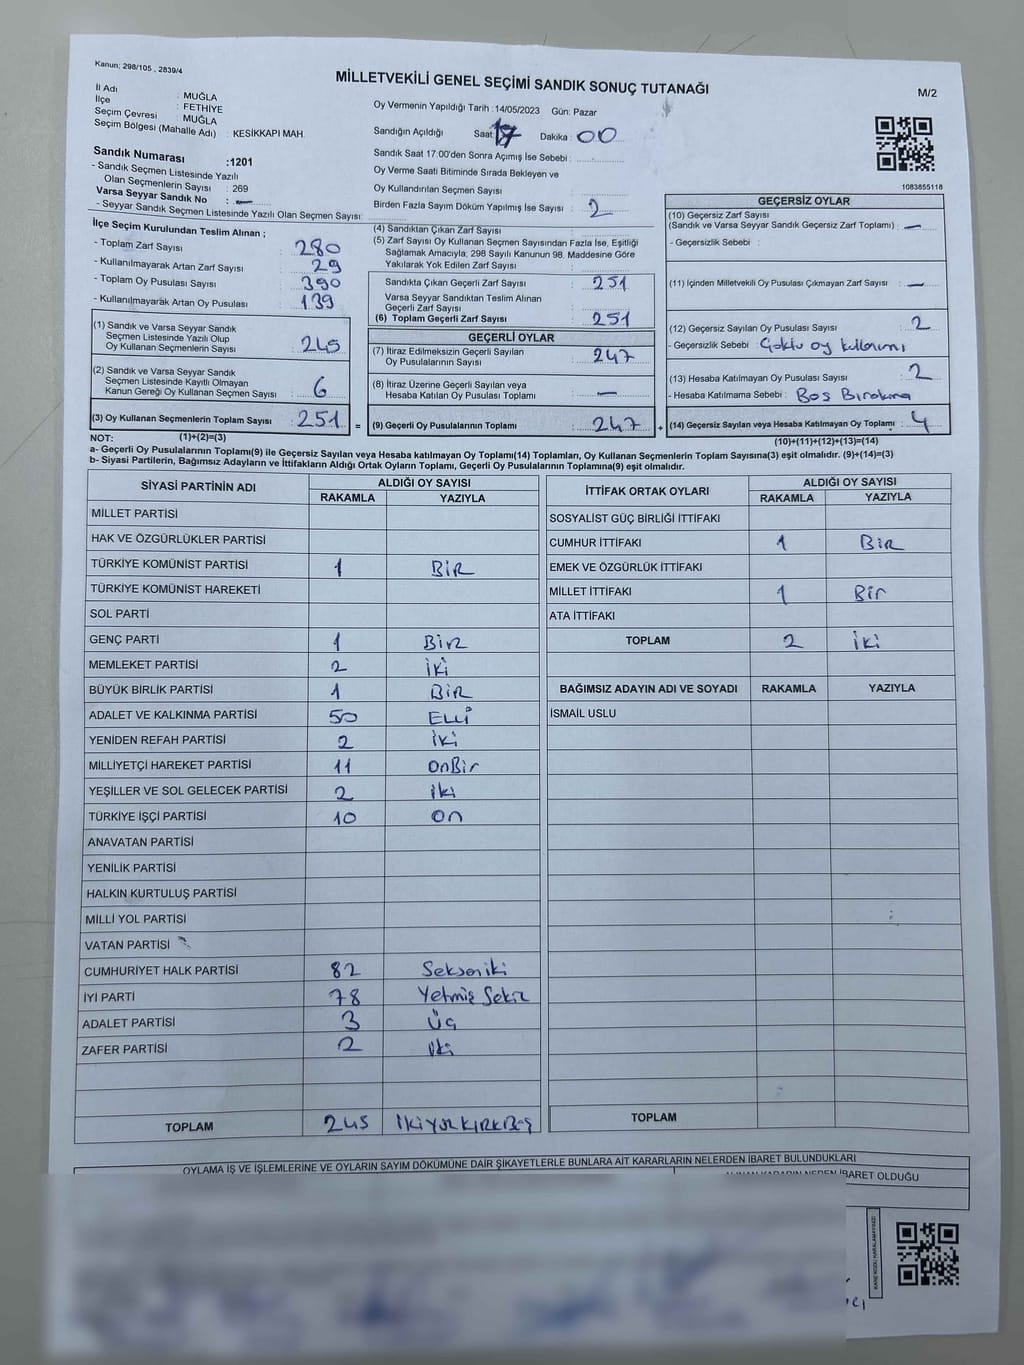 Kanun; 298/105 , 2839/4
MİLLETVEKİLİ GENEL SEÇİMİ SANDIK SONUÇ TUTANAĞI
M/2
İl Adı : MUĞLA
İlçe : FETHİYE
Seçim Çevresi : MUĞLA
Seçim Bölgesi (Mahalle Adı) : KESİKKAPI MAH.
Sandık Numarası :1201
- Sandık Seçmen Listesinde Yazılı
Olan Seçmenlerin Sayısı : 269
Varsa Seyyar Sandık No : —
- Seyyar Sandık Seçmen Listesinde Yazılı Olan Seçmen Sayısı:
Oy Vermenin Yapıldığı Tarih :14/05/2023 Gün: Pazar
Sandığın Açıldığı Saat: 17 Dakika : 00
Sandık Saat 17:00'den Sonra Açımış İse Sebebi :
Oy Verme Saati Bitiminde Sırada Bekleyen ve
Oy Kullandırılan Seçmen Sayısı :
Birden Fazla Sayım Döküm Yapılmış İse Sayısı : 2
1083855118
İlçe Seçim Kurulundan Teslim Alınan ;
- Toplam Zarf Sayısı : 280
- Kullanılmayarak Artan Zarf Sayısı : 29
- Toplam Oy Pusulası Sayısı : 390
- Kullanılmayarak Artan Oy Pusulası : 139
(1) Sandık ve Varsa Seyyar Sandık
Seçmen Listesinde Yazılı Olup
Oy Kullanan Seçmenlerin Sayısı : 245
(2) Sandık ve Varsa Seyyar Sandık
Seçmen Listesinde Kayıtlı Olmayan
Kanun Gereği Oy Kullanan Seçmen Sayısı : 6
(3) Oy Kullanan Seçmenlerin Toplam Sayısı : 251 =
(4) Sandıktan Çıkan Zarf Sayısı :
(5) Zarf Sayısı Oy Kullanan Seçmen Sayısından Fazla İse, Eşitliği
Sağlamak Amacıyla; 298 Sayılı Kanunun 98. Maddesine Göre
Yakılarak Yok Edilen Zarf Sayısı :
Sandıkta Çıkan Geçerli Zarf Sayısı : 251
Varsa Seyyar Sandıktan Teslim Alınan
Geçerli Zarf Sayısı :
(6) Toplam Geçerli Zarf Sayısı : 251
GEÇERLİ OYLAR
(7) İtiraz Edilmeksizin Geçerli Sayılan
Oy Pusulalarının Sayısı : 247
(8) İtiraz Üzerine Geçerli Sayılan veya
Hesaba Katılan Oy Pusulası Toplamı : —
(9) Geçerli Oy Pusulalarının Toplamı : 247 +
GEÇERSİZ OYLAR
(10) Geçersiz Zarf Sayısı
(Sandık ve Varsa Seyyar Sandık Geçersiz Zarf Toplamı) : —
- Geçersizlik Sebebi :
(11) İçinden Milletvekili Oy Pusulası Çıkmayan Zarf Sayısı : —
(12) Geçersiz Sayılan Oy Pusulası Sayısı : 2
- Geçersizlik Sebebi : Çoklu oy kullanımı
(13) Hesaba Katılmayan Oy Pusulası Sayısı : 2
- Hesaba Katılmama Sebebi : Boş Bırakma
(14) Geçersiz Sayılan veya Hesaba Katılmayan Oy Toplamı : 4
NOT: (1)+(2)=(3)
(10)+(11)+(12)+(13)=(14)
a- Geçerli Oy Pusulalarının Toplamı(9) ile Geçersiz Sayılan veya Hesaba katılmayan Oy Toplamı(14) Toplamları, Oy Kullanan Seçmenlerin Toplam Sayısına(3) eşit olmalıdır. (9)+(14)=(3)
b- Siyasi Partilerin, Bağımsız Adayların ve İttifakların Aldığı Ortak Oyların Toplamı, Geçerli Oy Pusulalarının Toplamına(9) eşit olmalıdır.
SİYASİ PARTİNİN ADI ALDIĞI OY SAYISI
RAKAMLA YAZIYLA
MİLLET PARTİSİ
HAK VE ÖZGÜRLÜKLER PARTİSİ
TÜRKİYE KOMÜNİST PARTİSİ 1 BİR
TÜRKİYE KOMÜNİST HAREKETİ
SOL PARTİ
GENÇ PARTİ 1 Bir
MEMLEKET PARTİSİ 2 iki
BÜYÜK BİRLİK PARTİSİ 1 BİR
ADALET VE KALKINMA PARTİSİ 50 ELLİ
YENİDEN REFAH PARTİSİ 2 iki
MİLLİYETÇİ HAREKET PARTİSİ 11 OnBir
YEŞİLLER VE SOL GELECEK PARTİSİ 2 iki
TÜRKİYE İŞÇİ PARTİSİ 10 On
ANAVATAN PARTİSİ
YENİLİK PARTİSİ
HALKIN KURTULUŞ PARTİSİ
MİLLİ YOL PARTİSİ
VATAN PARTİSİ
CUMHURİYET HALK PARTİSİ 82 Sekseniki
İYİ PARTİ 78 Yetmiş Sekiz
ADALET PARTİSİ 3 Üç
ZAFER PARTİSİ 2 iki
TOPLAM 245 İkiyüzKırkBeş
İTTİFAK ORTAK OYLARI ALDIĞI OY SAYISI
RAKAMLA YAZIYLA
SOSYALİST GÜÇ BİRLİĞİ İTTİFAKI
CUMHUR İTTİFAKI 1 BİR
EMEK VE ÖZGÜRLÜK İTTİFAKI
MİLLET İTTİFAKI 1 Bir
ATA İTTİFAKI
TOPLAM 2 iki
BAĞIMSIZ ADAYIN ADI VE SOYADI RAKAMLA YAZIYLA
İSMAİL USLU
TOPLAM
OYLAMA İŞ VE İŞLEMLERİNE VE OYLARIN SAYIM DÖKÜMÜNE DAİR ŞİKAYETLERLE BUNLARA AİT KARARLARIN NELERDEN İBARET BULUNDUKLARI
ALINAN KARARIN NEDEN İBARET OLDUĞU